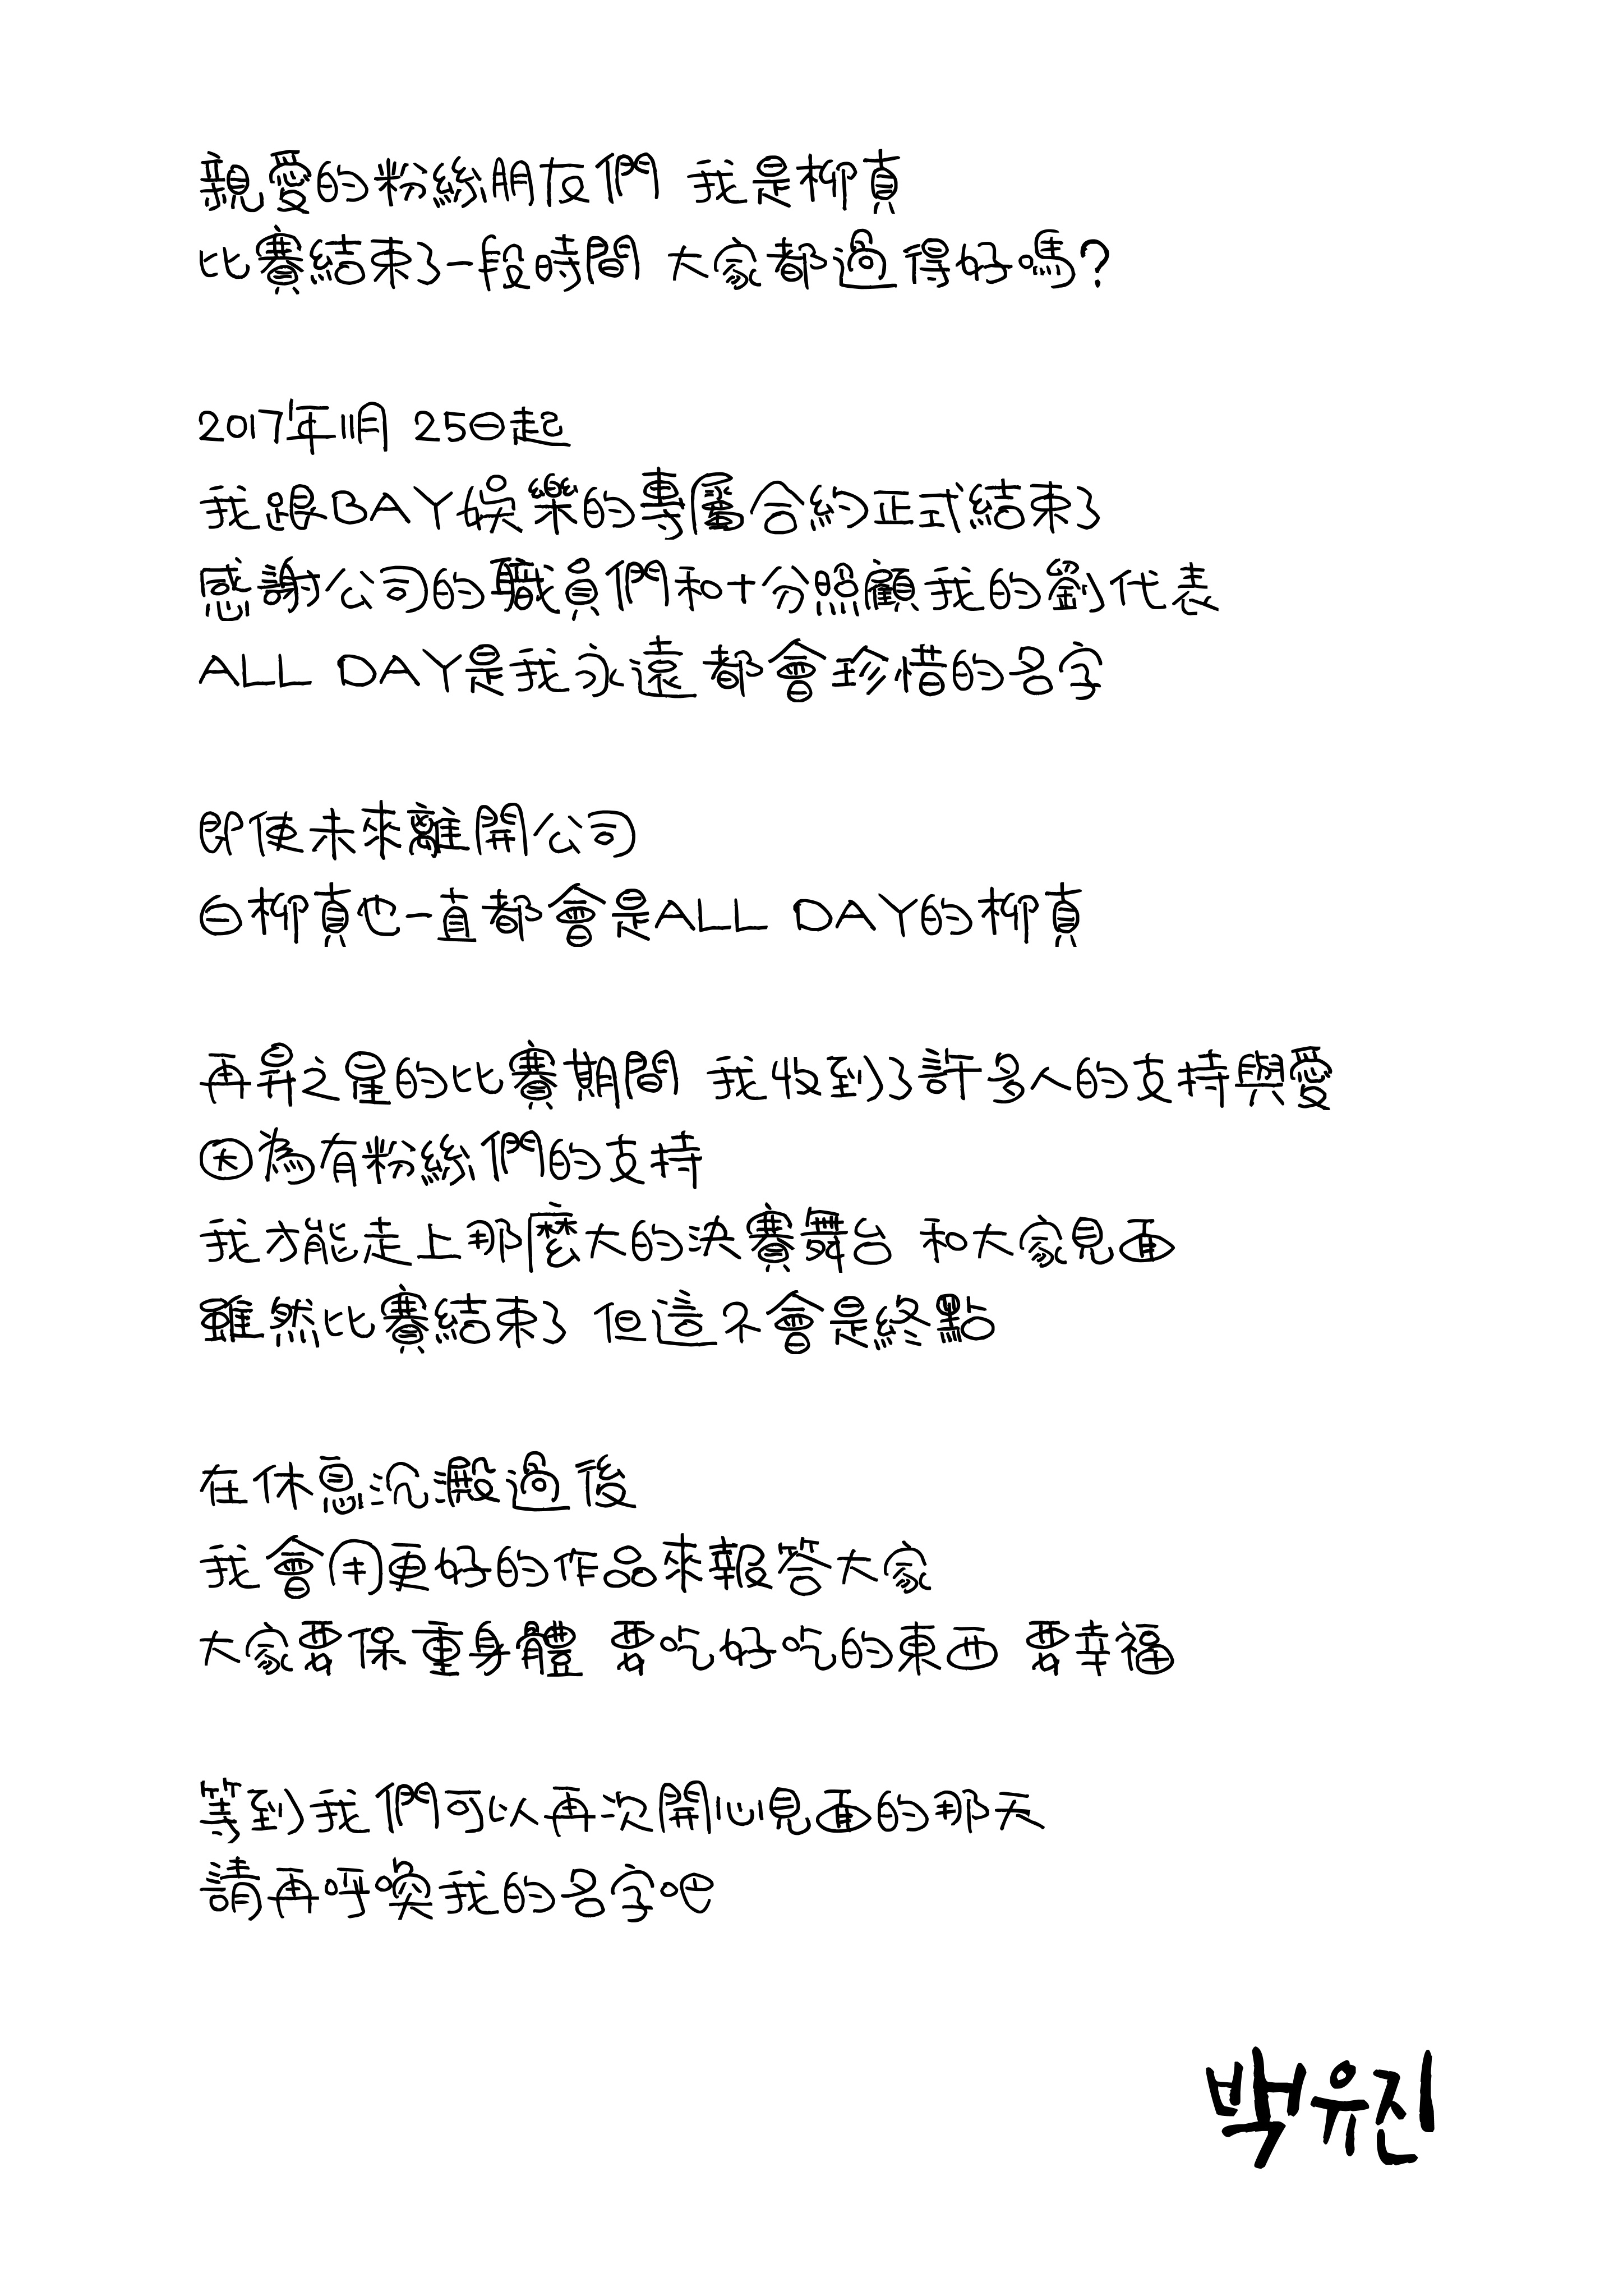 親愛的粉絲朋友們 我是柳真
比賽結束了一段時間 大家都過得好嗎?
2017年11月 25日起
我跟BAY娛樂的專屬合約正式結束了
感謝公司的職員們和十分照顧我的劉代表
ALL DAY是我永遠都會珍惜的名字
即使未來離開公司
白柳真也一直都會是ALL DAY的柳真
再昇之星的比賽期間 我收到了許多人的支持與愛
因為有粉絲們的支持
我才能走上那麼大的決賽舞台 和大家見面
雖然比賽結束了 但這不會是終點
在休息沉澱過後
我會用更好的作品來報答大家
大家要保重身體 要吃好吃的東西 要幸福
等到我們可以再次開心見面的那天
請再呼喚我的名字吧
백유진